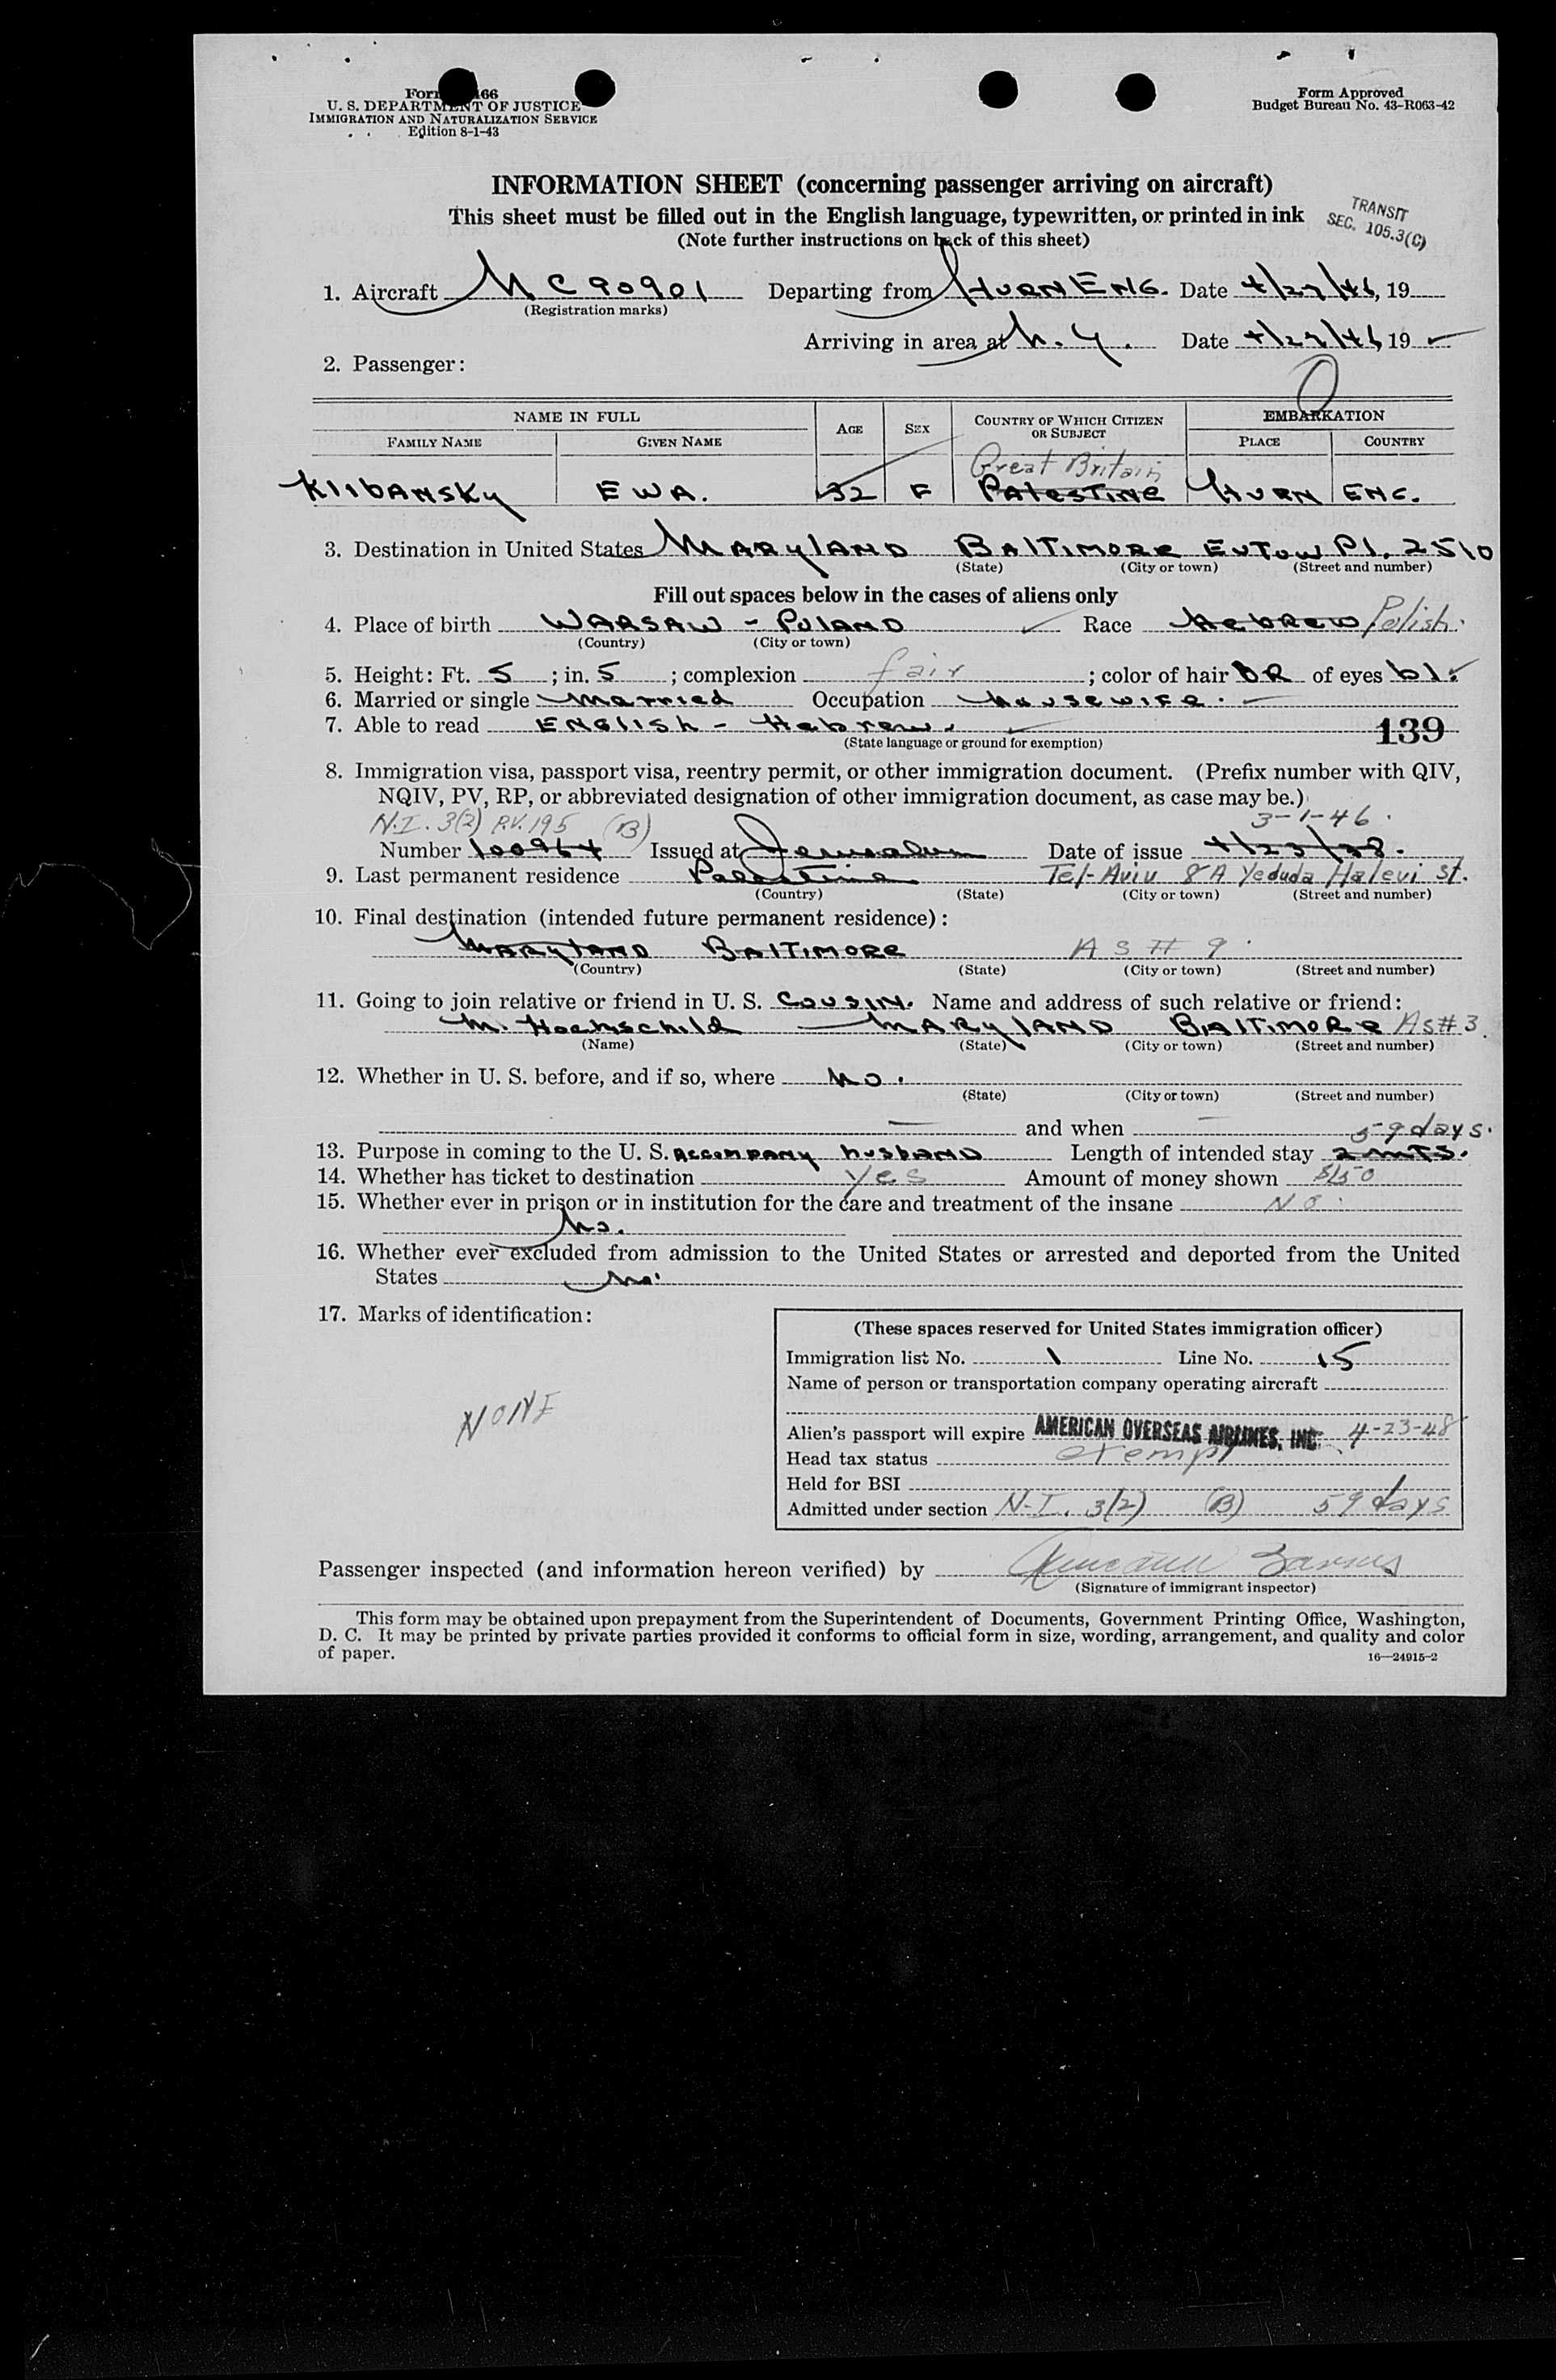 Form 466
U. S. DEPARTMENT OF JUSTICE
IMMIGRATION AND NATURALIZATION SERVICE
Edition 8-1-43
Form Approved
Budget Bureau No. 43-R063-42
INFORMATION SHEET (concerning passenger arriving on aircraft)
This sheet must be filled out in the English language, typewritten, or printed in ink
TRANSIT
SEC. 105.3(C)
(Note further instructions on back of this sheet)
1. Aircraft NC 90901 Departing from HURN ENG. Date 4/27/46, 19
(Registration marks)
Arriving in area at N. Y. Date 4/27/46, 19
2. Passenger:
NAME IN FULL AGE SEX COUNTRY OF WHICH CITIZEN OR SUBJECT EMBARKATION
FAMILY NAME GIVEN NAME PLACE COUNTRY
Great Britain
KlibANSKy EWA. 32 F PAlesTINE HURN ENG.
3. Destination in United States MARylAND BAlTIMORE EUTOW Pl. 2510
(State) (City or town) (Street and number)
Fill out spaces below in the cases of aliens only
4. Place of birth WARSAW - POlAND Race HebREW Polish.
(Country) (City or town)
5. Height: Ft. 5 ; in. 5 ; complexion fair ; color of hair BR of eyes bl.
6. Married or single Married Occupation housewife.
7. Able to read ENGlish - Hebrew.
(State language or ground for exemption)
139
8. Immigration visa, passport visa, reentry permit, or other immigration document. (Prefix number with QIV,
NQIV, PV, RP, or abbreviated designation of other immigration document, as case may be.)
N.I. 3(2) P.V. 195 (B) 3-1-46.
Number 100964 Issued at Jerusalem Date of issue 4/23/38.
9. Last permanent residence Palestine Tel-Aviv 8A Yeduda Halevi St.
(Country) (State) (City or town) (Street and number)
10. Final destination (intended future permanent residence):
MARylAND BAlTIMORE AS # 9.
(Country) (State) (City or town) (Street and number)
11. Going to join relative or friend in U. S. COUSIN. Name and address of such relative or friend:
M. Hochschild — MARylAND BAlTIMORE AS # 3.
(Name) (State) (City or town) (Street and number)
12. Whether in U. S. before, and if so, where No.
(State) (City or town) (Street and number)
— and when — 59 days.
13. Purpose in coming to the U. S. ACCOMPANY husbAND Length of intended stay 2 MTS.
14. Whether has ticket to destination Yes Amount of money shown $150
15. Whether ever in prison or in institution for the care and treatment of the insane NO.
No.
16. Whether ever excluded from admission to the United States or arrested and deported from the United
States No.
17. Marks of identification:
NONE
(These spaces reserved for United States immigration officer)
Immigration list No. 1 Line No. 15
Name of person or transportation company operating aircraft
Alien's passport will expire AMERICAN OVERSEAS AIRLINES, INC. 4-23-48
Head tax status exempt
Held for BSI
Admitted under section N-I. 3(2) (B) 59 days
Passenger inspected (and information hereon verified) by
(Signature of immigrant inspector)
This form may be obtained upon prepayment from the Superintendent of Documents, Government Printing Office, Washington,
D. C. It may be printed by private parties provided it conforms to official form in size, wording, arrangement, and quality and color
of paper.
16—24915-2